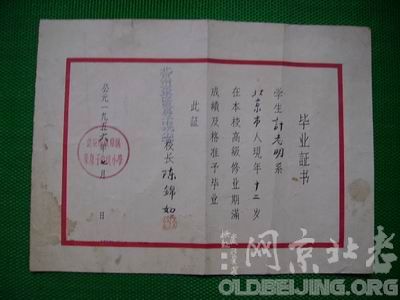 毕业証书
学生許志明系
北京市人現年十二岁
在本校高級修业期滿
成績及格准予毕业
此証
校长 陈錦如
公元一九五六年七月 日
老北京网
OLDBEIJING.ORG